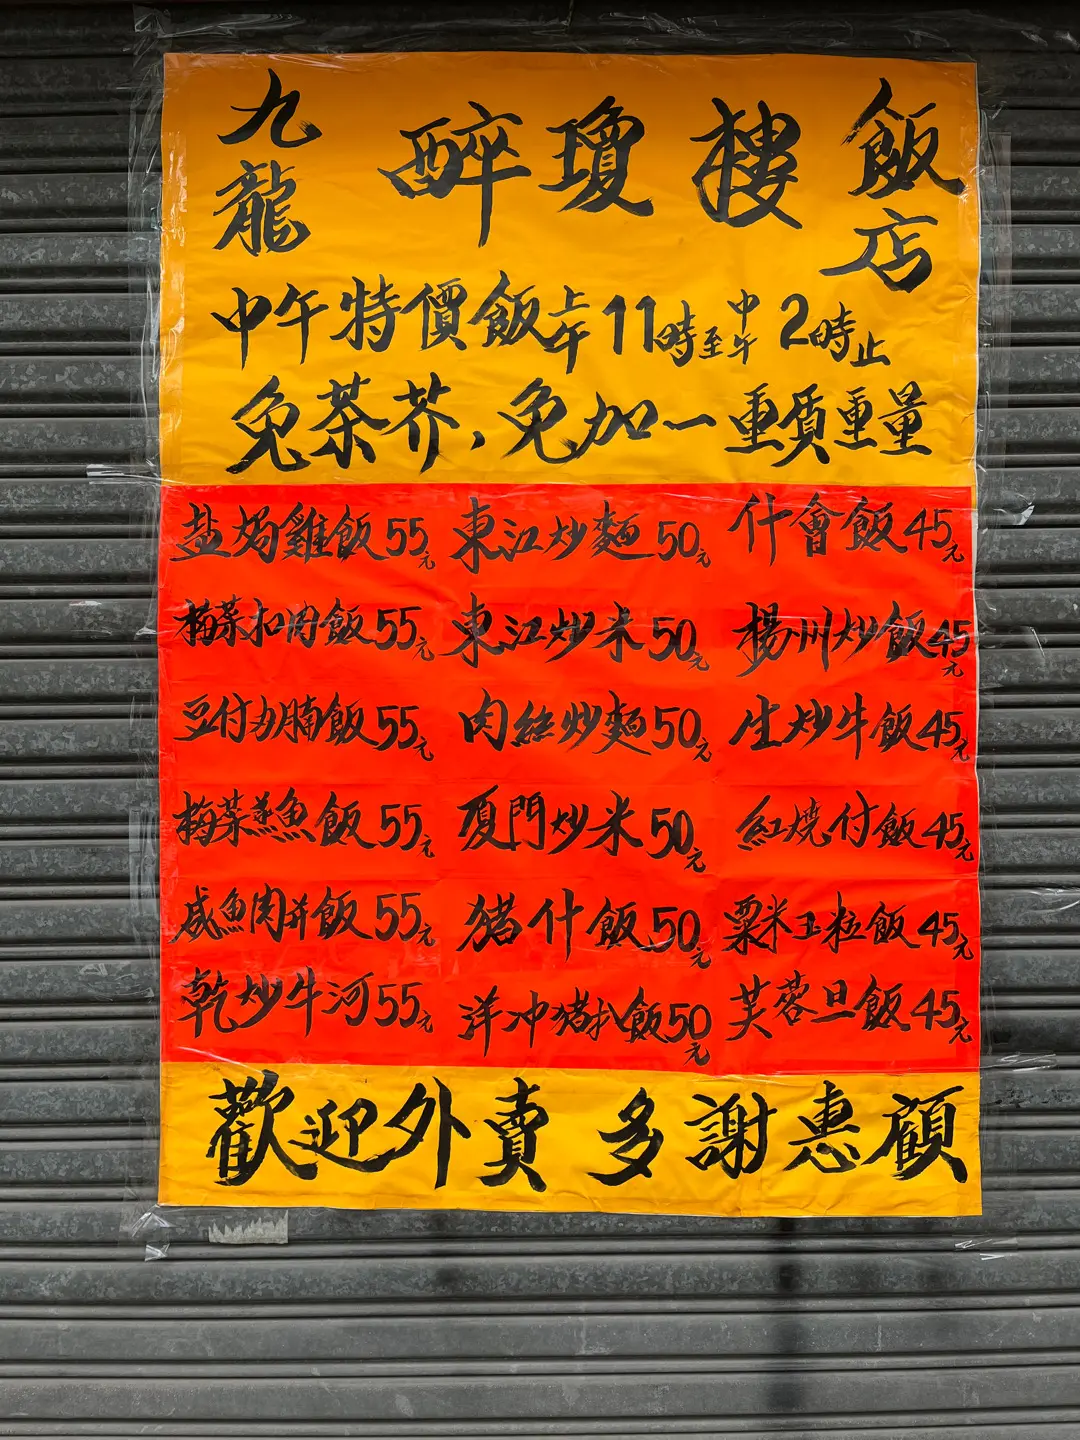 九龍 醉瓊樓 飯店
中午特價飯上午11時至中午2時止
免茶芥,免加一重質重量
盐焗雞飯55元 東江炒麵50元 什會飯45元
梅菜扣肉飯55元 東江炒米50元 楊州炒飯45元
豆付力腩飯55元 肉絲炒麵50元 生炒牛飯45元
梅菜蒸魚飯55元 厦門炒米50元 紅燒付飯45元
咸魚肉并飯55元 猪什飯50元 粟米玉粒飯45元
乾炒牛河55元 洋冲猪扒飯50元 芙蓉旦飯45元
歡迎外賣 多謝惠顧